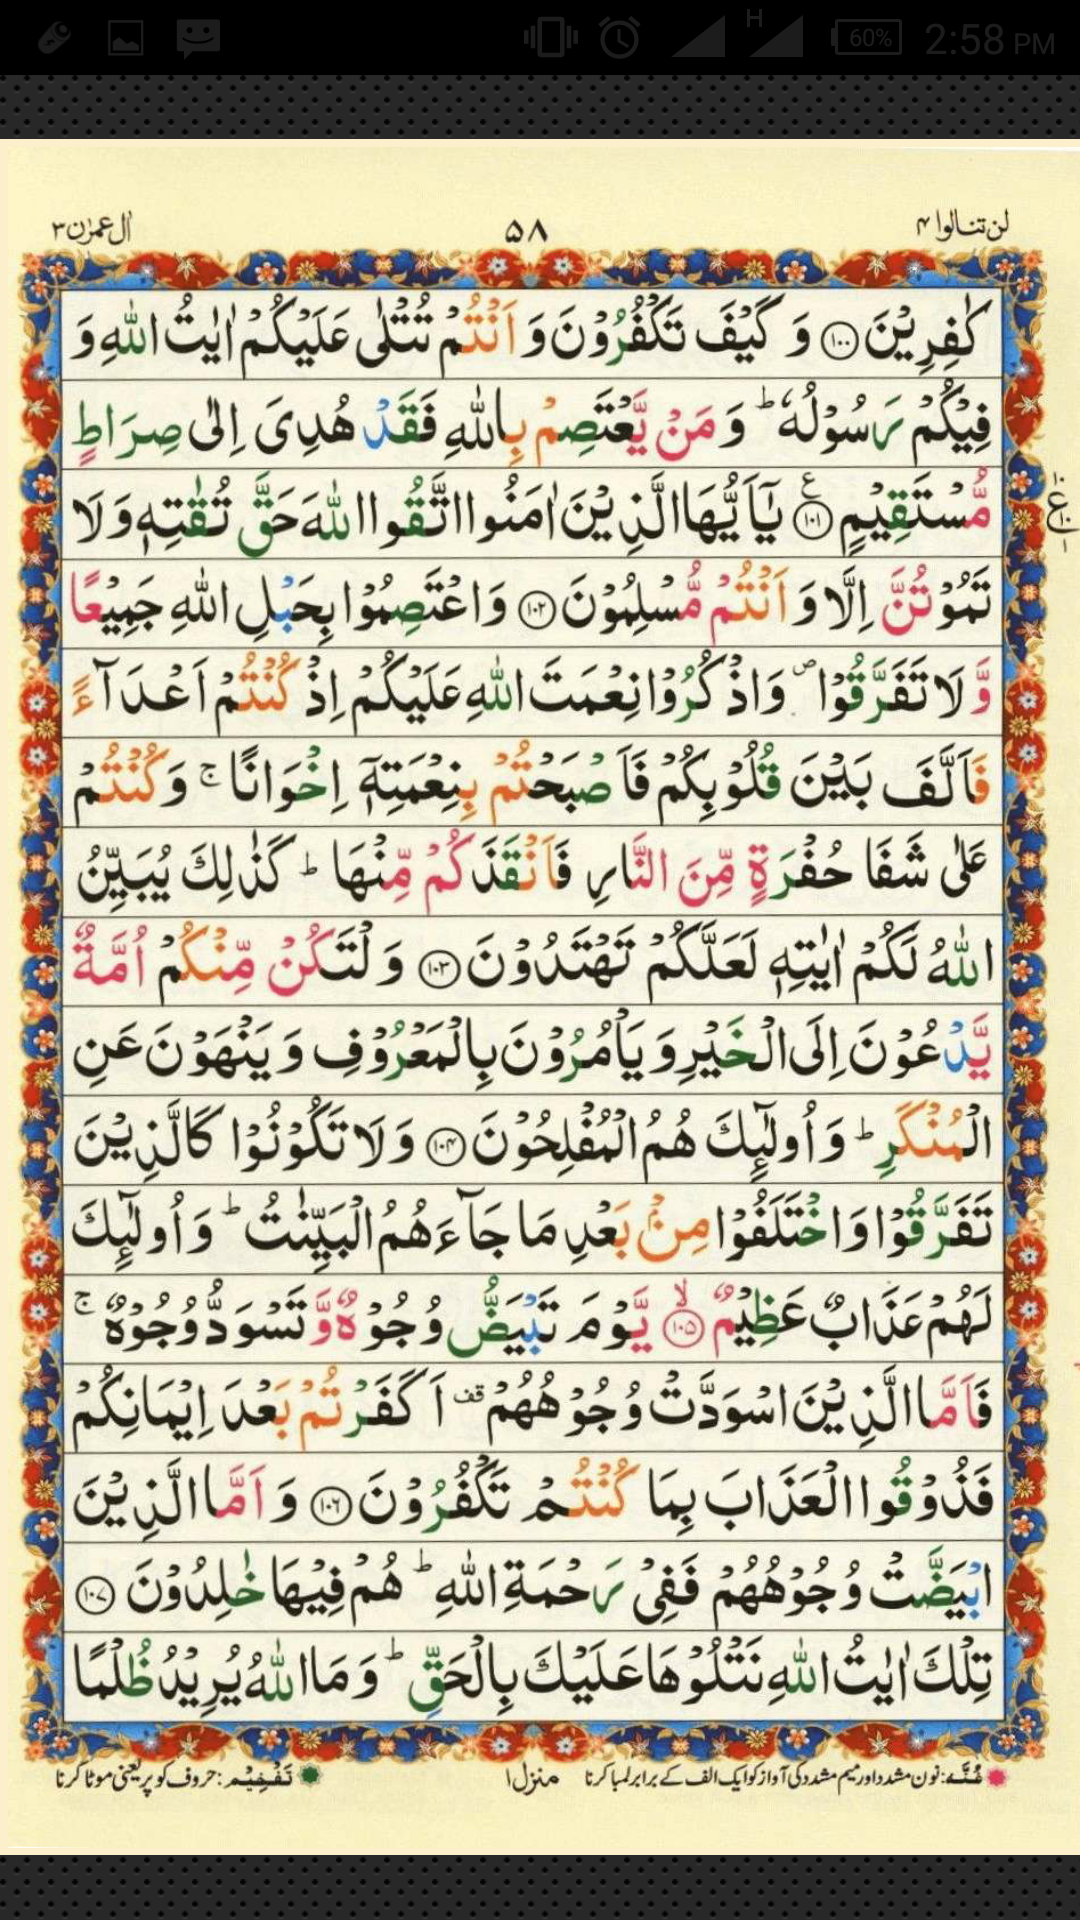 H 60% 2:58 PM
لن تنالوا ۴ ۵۸ اٰل عمرٰن ۳
كٰفِرِيْنَ ۱۰۰ وَ كَيْفَ تَكْفُرُوْنَ وَ اَنْتُمْ تُتْلٰى عَلَيْكُمْ اٰيٰتُ اللّٰهِ وَ
فِيْكُمْ رَسُوْلُهٗ ؕ وَ مَنْ يَّعْتَصِمْ بِاللّٰهِ فَقَدْ هُدِيَ اِلٰى صِرَاطٍ
مُّسْتَقِيْمٍ ۱۰۱ ع يٰٓاَيُّهَا الَّذِيْنَ اٰمَنُوا اتَّقُوا اللّٰهَ حَقَّ تُقٰتِهٖ وَ لَا
ع ۱۰ ۱۰ ۱
تَمُوْتُنَّ اِلَّا وَ اَنْتُمْ مُّسْلِمُوْنَ ۱۰۲ وَ اعْتَصِمُوْا بِحَبْلِ اللّٰهِ جَمِيْعًا
وَّ لَا تَفَرَّقُوْا ۪ وَ اذْكُرُوْا نِعْمَتَ اللّٰهِ عَلَيْكُمْ اِذْ كُنْتُمْ اَعْدَآءً
فَاَلَّفَ بَيْنَ قُلُوْبِكُمْ فَاَصْبَحْتُمْ بِنِعْمَتِهٖٓ اِخْوَانًا ۚ وَ كُنْتُمْ
عَلٰى شَفَا حُفْرَةٍ مِّنَ النَّارِ فَاَنْقَذَكُمْ مِّنْهَا ؕ كَذٰلِكَ يُبَيِّنُ
اللّٰهُ لَكُمْ اٰيٰتِهٖ لَعَلَّكُمْ تَهْتَدُوْنَ ۱۰۳ وَ لْتَكُنْ مِّنْكُمْ اُمَّةٌ
يَّدْعُوْنَ اِلَى الْخَيْرِ وَ يَاْمُرُوْنَ بِالْمَعْرُوْفِ وَ يَنْهَوْنَ عَنِ
الْمُنْكَرِ ؕ وَ اُولٰٓئِكَ هُمُ الْمُفْلِحُوْنَ ۱۰۴ وَ لَا تَكُوْنُوْا كَالَّذِيْنَ
تَفَرَّقُوْا وَ اخْتَلَفُوْا مِنْۢ بَعْدِ مَا جَآءَهُمُ الْبَيِّنٰتُ ؕ وَ اُولٰٓئِكَ
لَهُمْ عَذَابٌ عَظِيْمٌ ۱۰۵ ۙ يَّوْمَ تَبْيَضُّ وُجُوْهٌ وَّ تَسْوَدُّ وُجُوْهٌ ۚ
فَاَمَّا الَّذِيْنَ اسْوَدَّتْ وُجُوْهُهُمْ قف اَكَفَرْتُمْ بَعْدَ اِيْمَانِكُمْ
فَذُوْقُوا الْعَذَابَ بِمَا كُنْتُمْ تَكْفُرُوْنَ ۱۰۶ وَ اَمَّا الَّذِيْنَ
ابْيَضَّتْ وُجُوْهُهُمْ فَفِيْ رَحْمَةِ اللّٰهِ ؕ هُمْ فِيْهَا خٰلِدُوْنَ ۱۰۷
تِلْكَ اٰيٰتُ اللّٰهِ نَتْلُوْهَا عَلَيْكَ بِالْحَقِّ ؕ وَ مَا اللّٰهُ يُرِيْدُ ظُلْمًا
غُنَّه: نون مشدد اور میم مشدد کی آواز کو ایک الف کے برابر لمبا کرنا منزل ۱ تَفْخِيْم: حروف کو پر یعنی موٹا کرنا